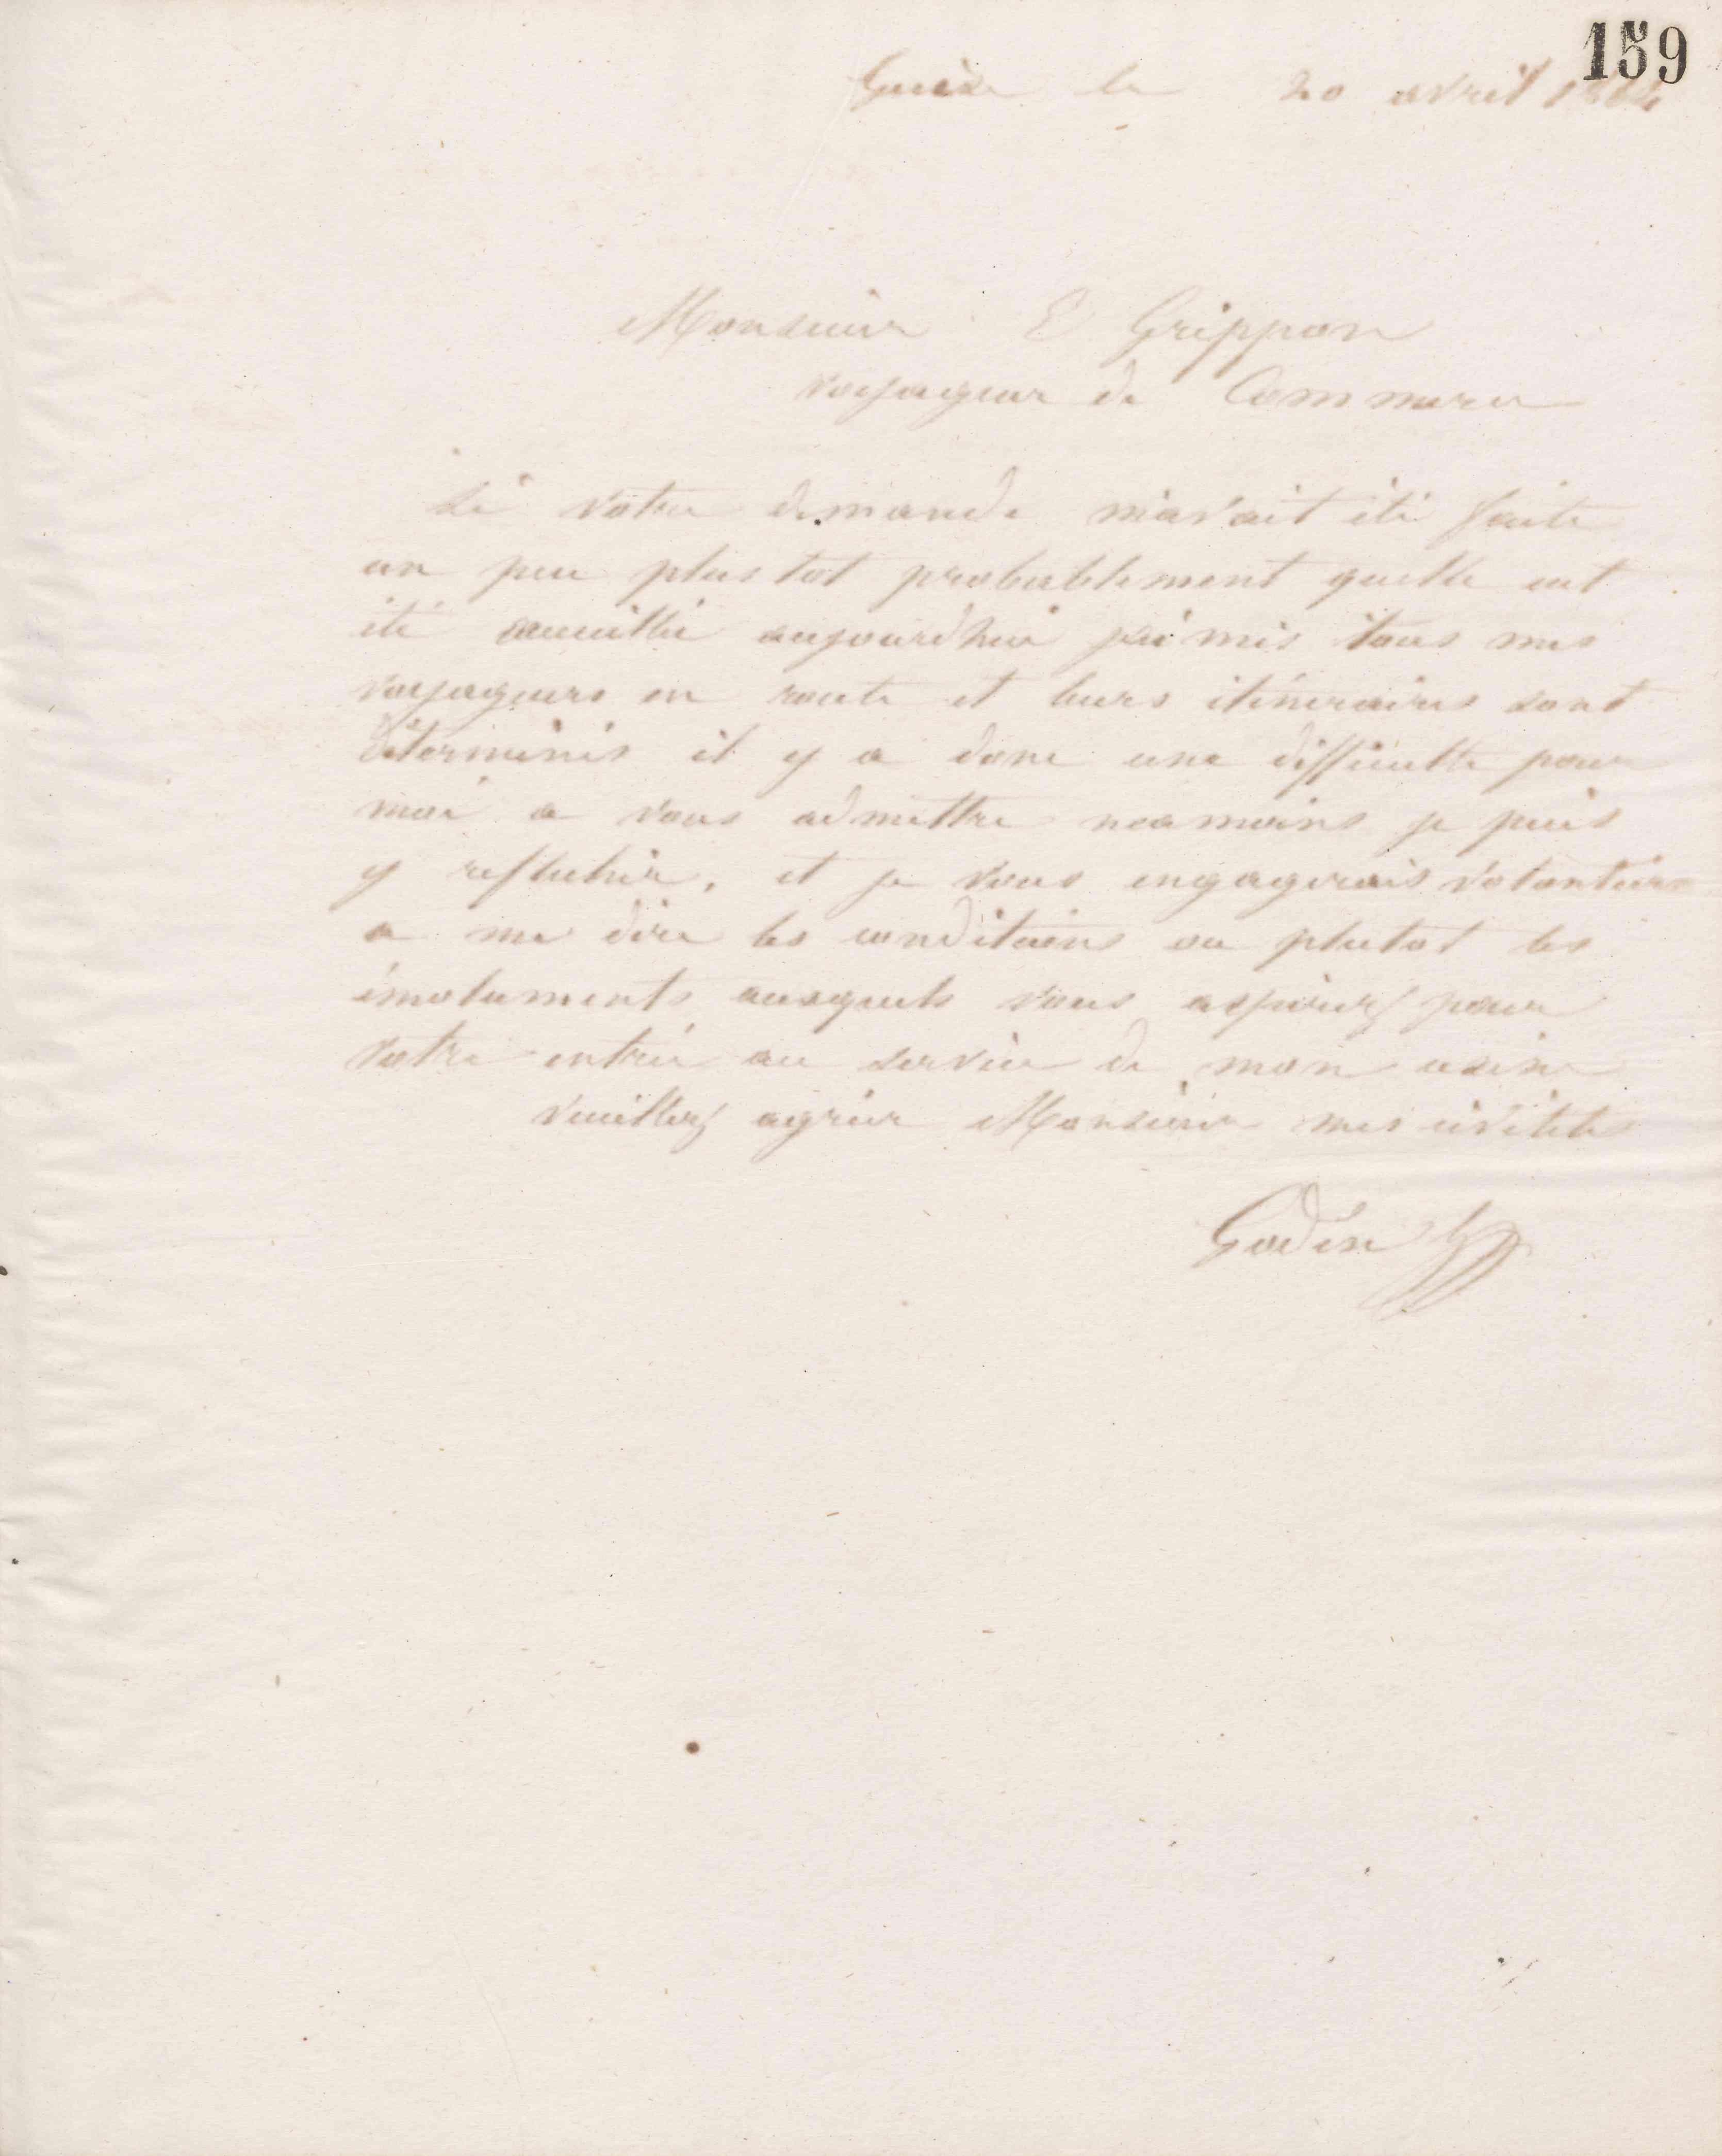 159
Guise le 20 avril 1864
Monsieur E Grippon
voyageur de Commerce
Si votre demande m'avait été faite
un peu plus tot probablement quelle eut
été accueillie aujourdhui j'ai mis tous mes
voyageurs en route et leurs itineraires sont
déterminés il y a donc une difficulte pour
moi a vous admettre neamoins je puis
y reflechir, et je vous engagerais volontiers
a me dire les conditions ou plutot les
émoluments auxquels vous aspirez pour
votre entrée au service de mon usine
Veuillez agréer Monsieur mes civilités
Godin